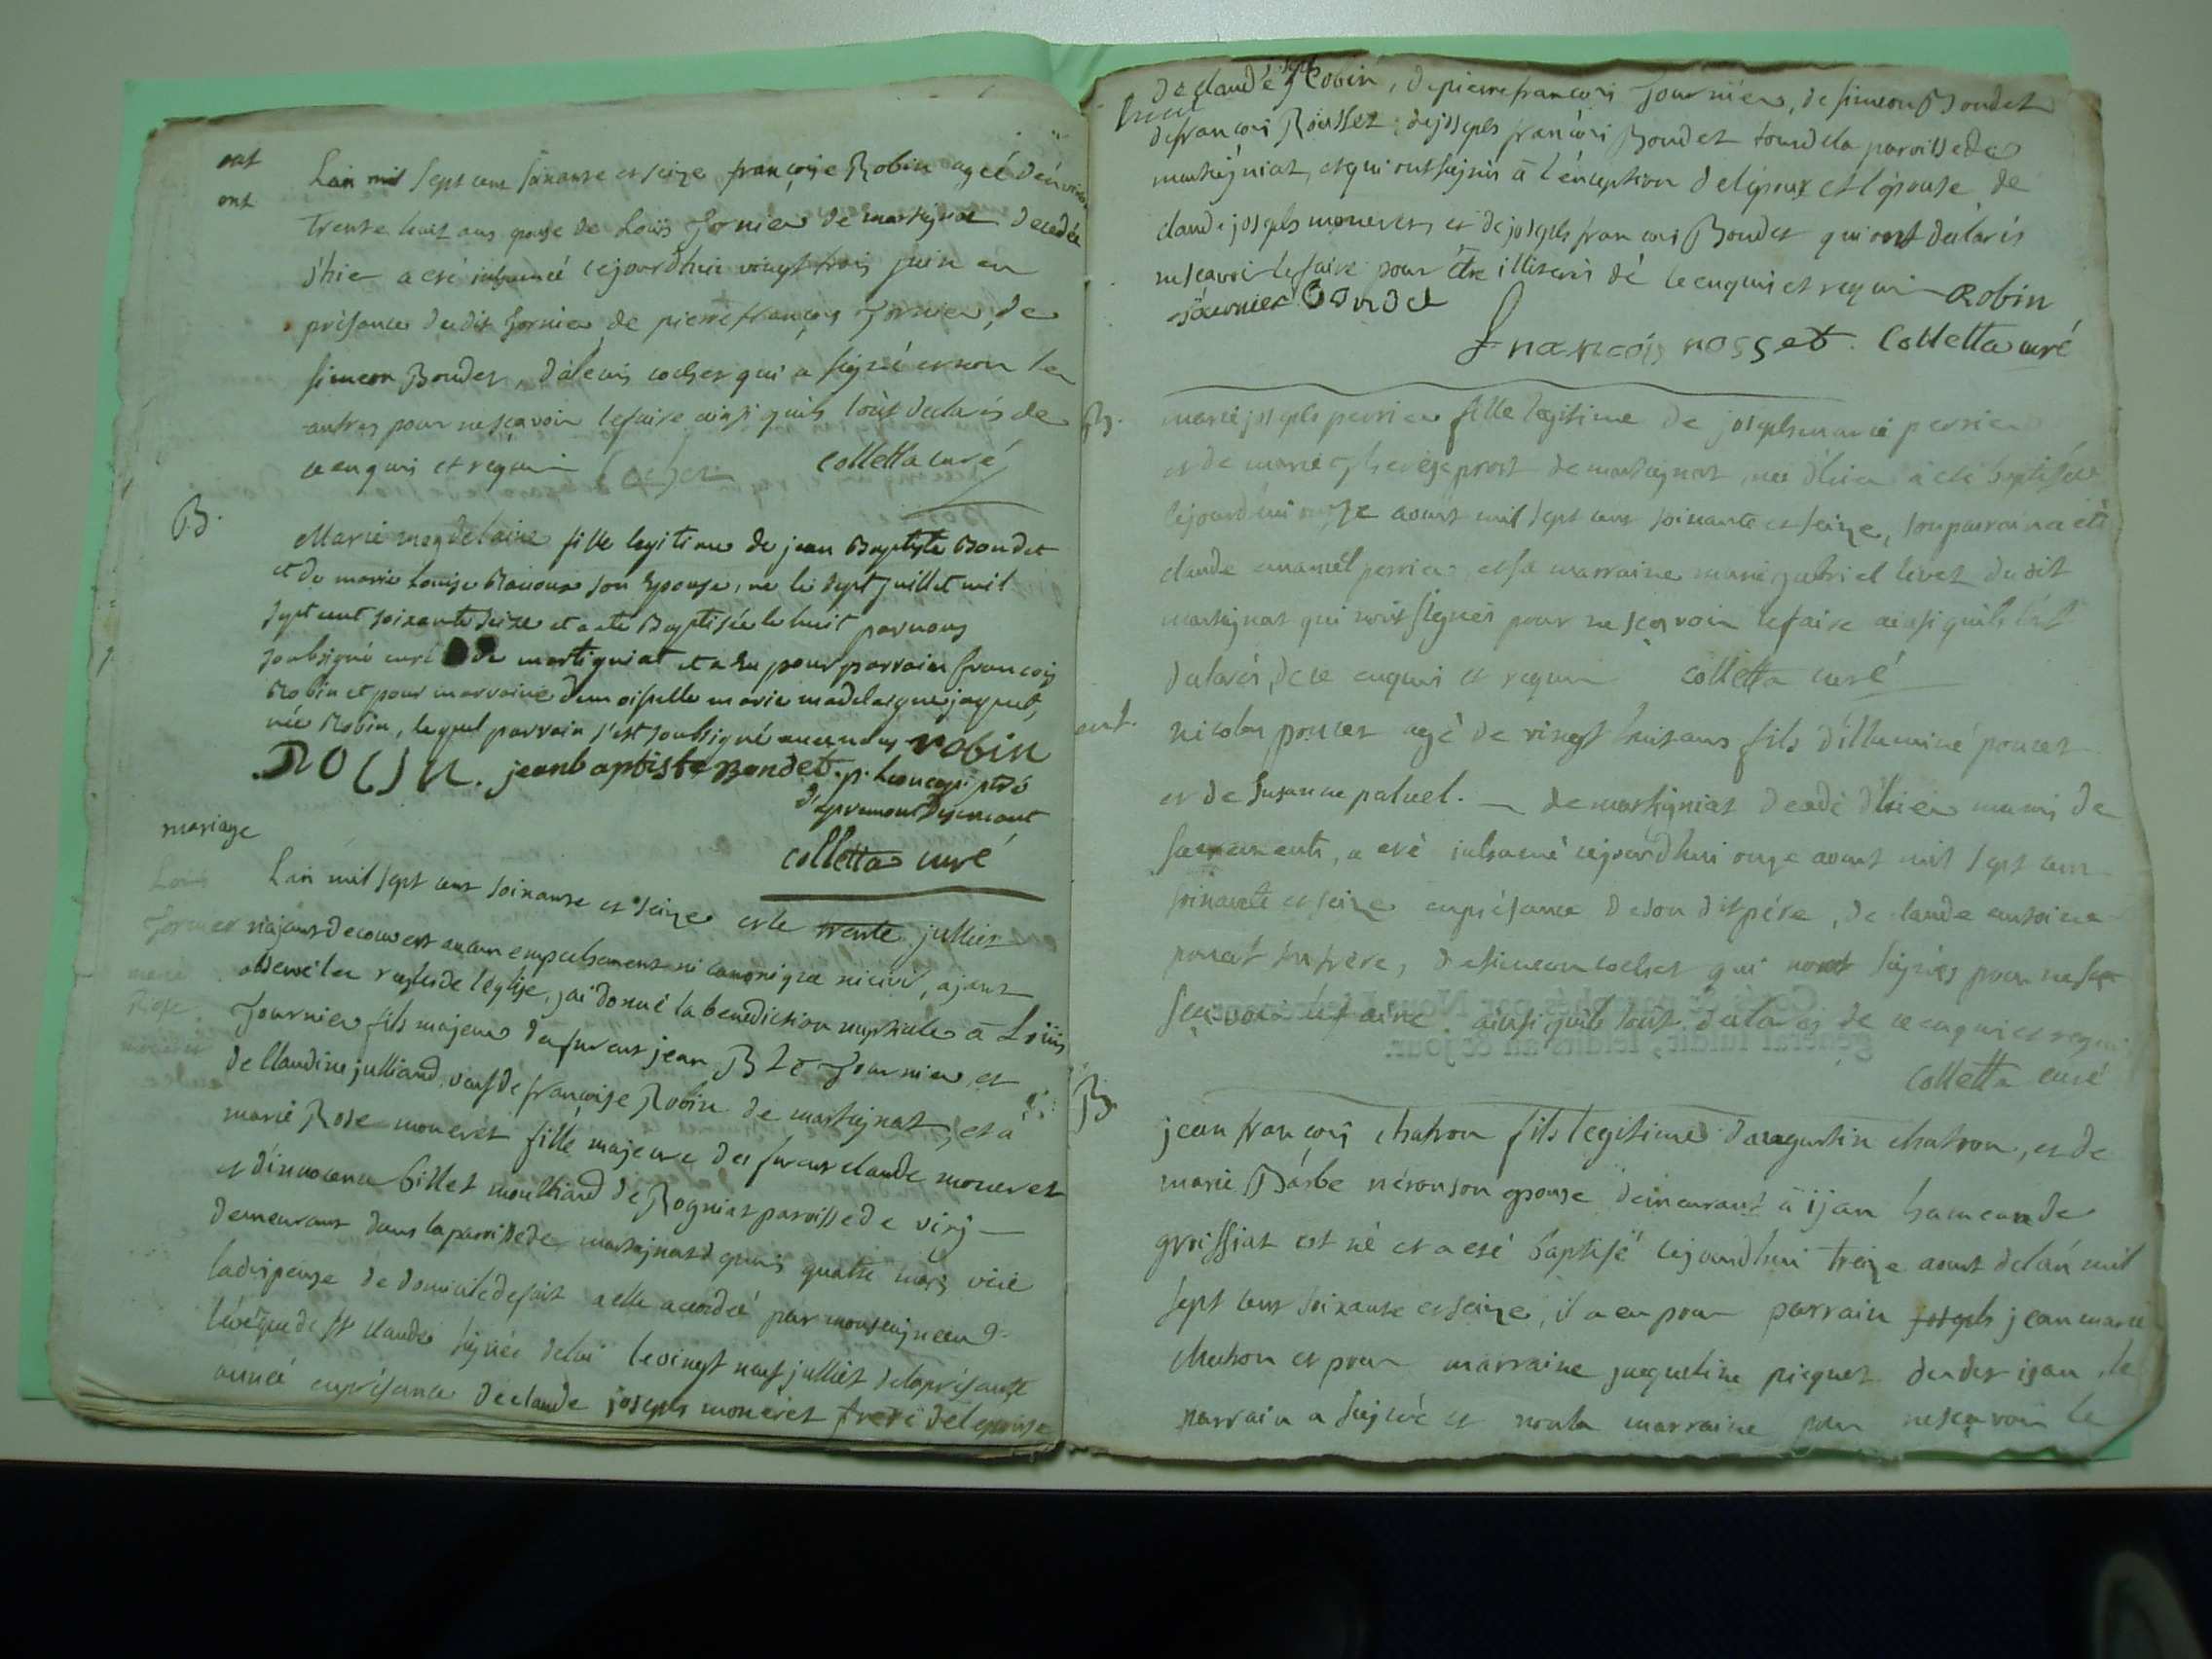 ent
ent
Lan mil sept cent soixante et seize françoise Robin ageé denviron
trente huit ans epouse de Loüis fornier de martignat decedée
d'hier a esté inhumeé cejourdhui vingt trois juin en
présance dudit fornier de pierre françois fornier, de
simeon Bondet, d'alexis cochet qui a signé et non les
autres pour ne sçavoir le faire ainsi quils lont declarés de
ce enquis et requis Cochet colletta curé
B.
Marie magdelaine fille legitime de jean Baptiste Bondet
et de marie Louise son Epouse, ne le sept juillet mil
sept cent soixante seize et a ete Baptisée le huit par nous
soubsigné curé de martigniat et a Eu pour parrain françois
Robin et pour marraine demoiselle marie madelaigne jaquet,
née Robin, lequel parrain s'est soubsigné robin
ROBIN. jean baptiste Bondet.
colletta curé
mariage
Louis
fornier
Rose
Lan mil sept cent soixante et seize et le trente julliet
n'ajant decouvert aucun empechement ni canonique ni civil, ajant
observé les regles de l'église, j'ai donné la benediction nuptiale a Loüis
fournier fils majeur de furent jean Bte fournier et
de Claudine julliand, veuf de françoise Robin de martignat, et a
marie Rose moneret fille majeure de furent claude moneret
et d'innocence billet moulliard de Rogniat paroisse de viry
demeurant dans la paroisse de martignat depuis quatre mois vüe
la dispense de domicile de fait a elle accordeé par monseigneur
l'evêque de st claude signée de lui le vingt neuf julliet de la présante
année en présance de claude joseph moneret frere de l'epouse
de claude joseph Robin, de pierre françois fournier, de simeon Bondet
de françois Rousset, de joseph françois Bondet tous de la paroisse de
martigniat, et qui ont signés à l'exception de l'epoux et l'épouse, de
claude joseph moneret, et de joseph françois Bondet qui ont declarés
ne sçavoir le faire pour être illiterés de ce enquis et requis Robin
fournier Bondet
françois rosset. Colletta curé
B.
marie joseph perrier fille legitime de joseph marie perrier
et de marie therese prost de martignat, née d'hier a été baptisée
cejourdhui onze aoust mil sept cent soixante et seize, son parrain a été
claude emanuël perrier et sa marraine marie gabriel levet dudit
martignat qui n'ont signés pour ne sçavoir le faire ainsi quils l'ont
declarés, de ce enquis et requis colletta curé
ent.
nicolas poncet agé de vingt huit ans fils d'illuminé poncet
et de Susanne paluel. de martigniat decedé d'hier muni de
sacrements, a esté inhumé cejourdhui onze aoust mil sept cent
soixante et seize en présance de son dit père, de claude antoine
poncet son frère, de simeon cochet qui n'ont signés pour ne
sçavoir le faire. ainsi quils l'ont declarés de ce enquis et requis
colletta curé
B.
jean françois chatron fils legitime d'augustin chatron, et de
marie Barbe néron son epouse demeurant à ijan hameau de
groissiat est né et a esté baptisé cejourdhui treize aoust de l'an mil
sept cent soixante et seize, il a eu pour parrain joseph jean marie
chatron et pour marraine jacqueline piquet dudit ijan, le
parrain a signé et non la marraine pour ne sçavoir le